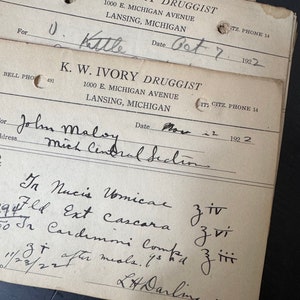 K. W. IVORY DRUGGIST
1000 E. MICHIGAN AVENUE
LANSING, MICHIGAN
CITZ. PHONE 14
For V. Kettle Date Oct 7 1922
K. W. IVORY DRUGGIST
BELL PHONE 491
1000 E. MICHIGAN AVENUE
CITZ. PHONE 14
LANSING, MICHIGAN
For John Maloy Date Nov 22 1922
Address Mich Central Section
Tr Nucis Vomicae ʒ iv
Fld Ext Cascara ʒ vi
Tr Cardamomi Comp ʒ iii
ʒ i after meals
11/23/22
L H Darling